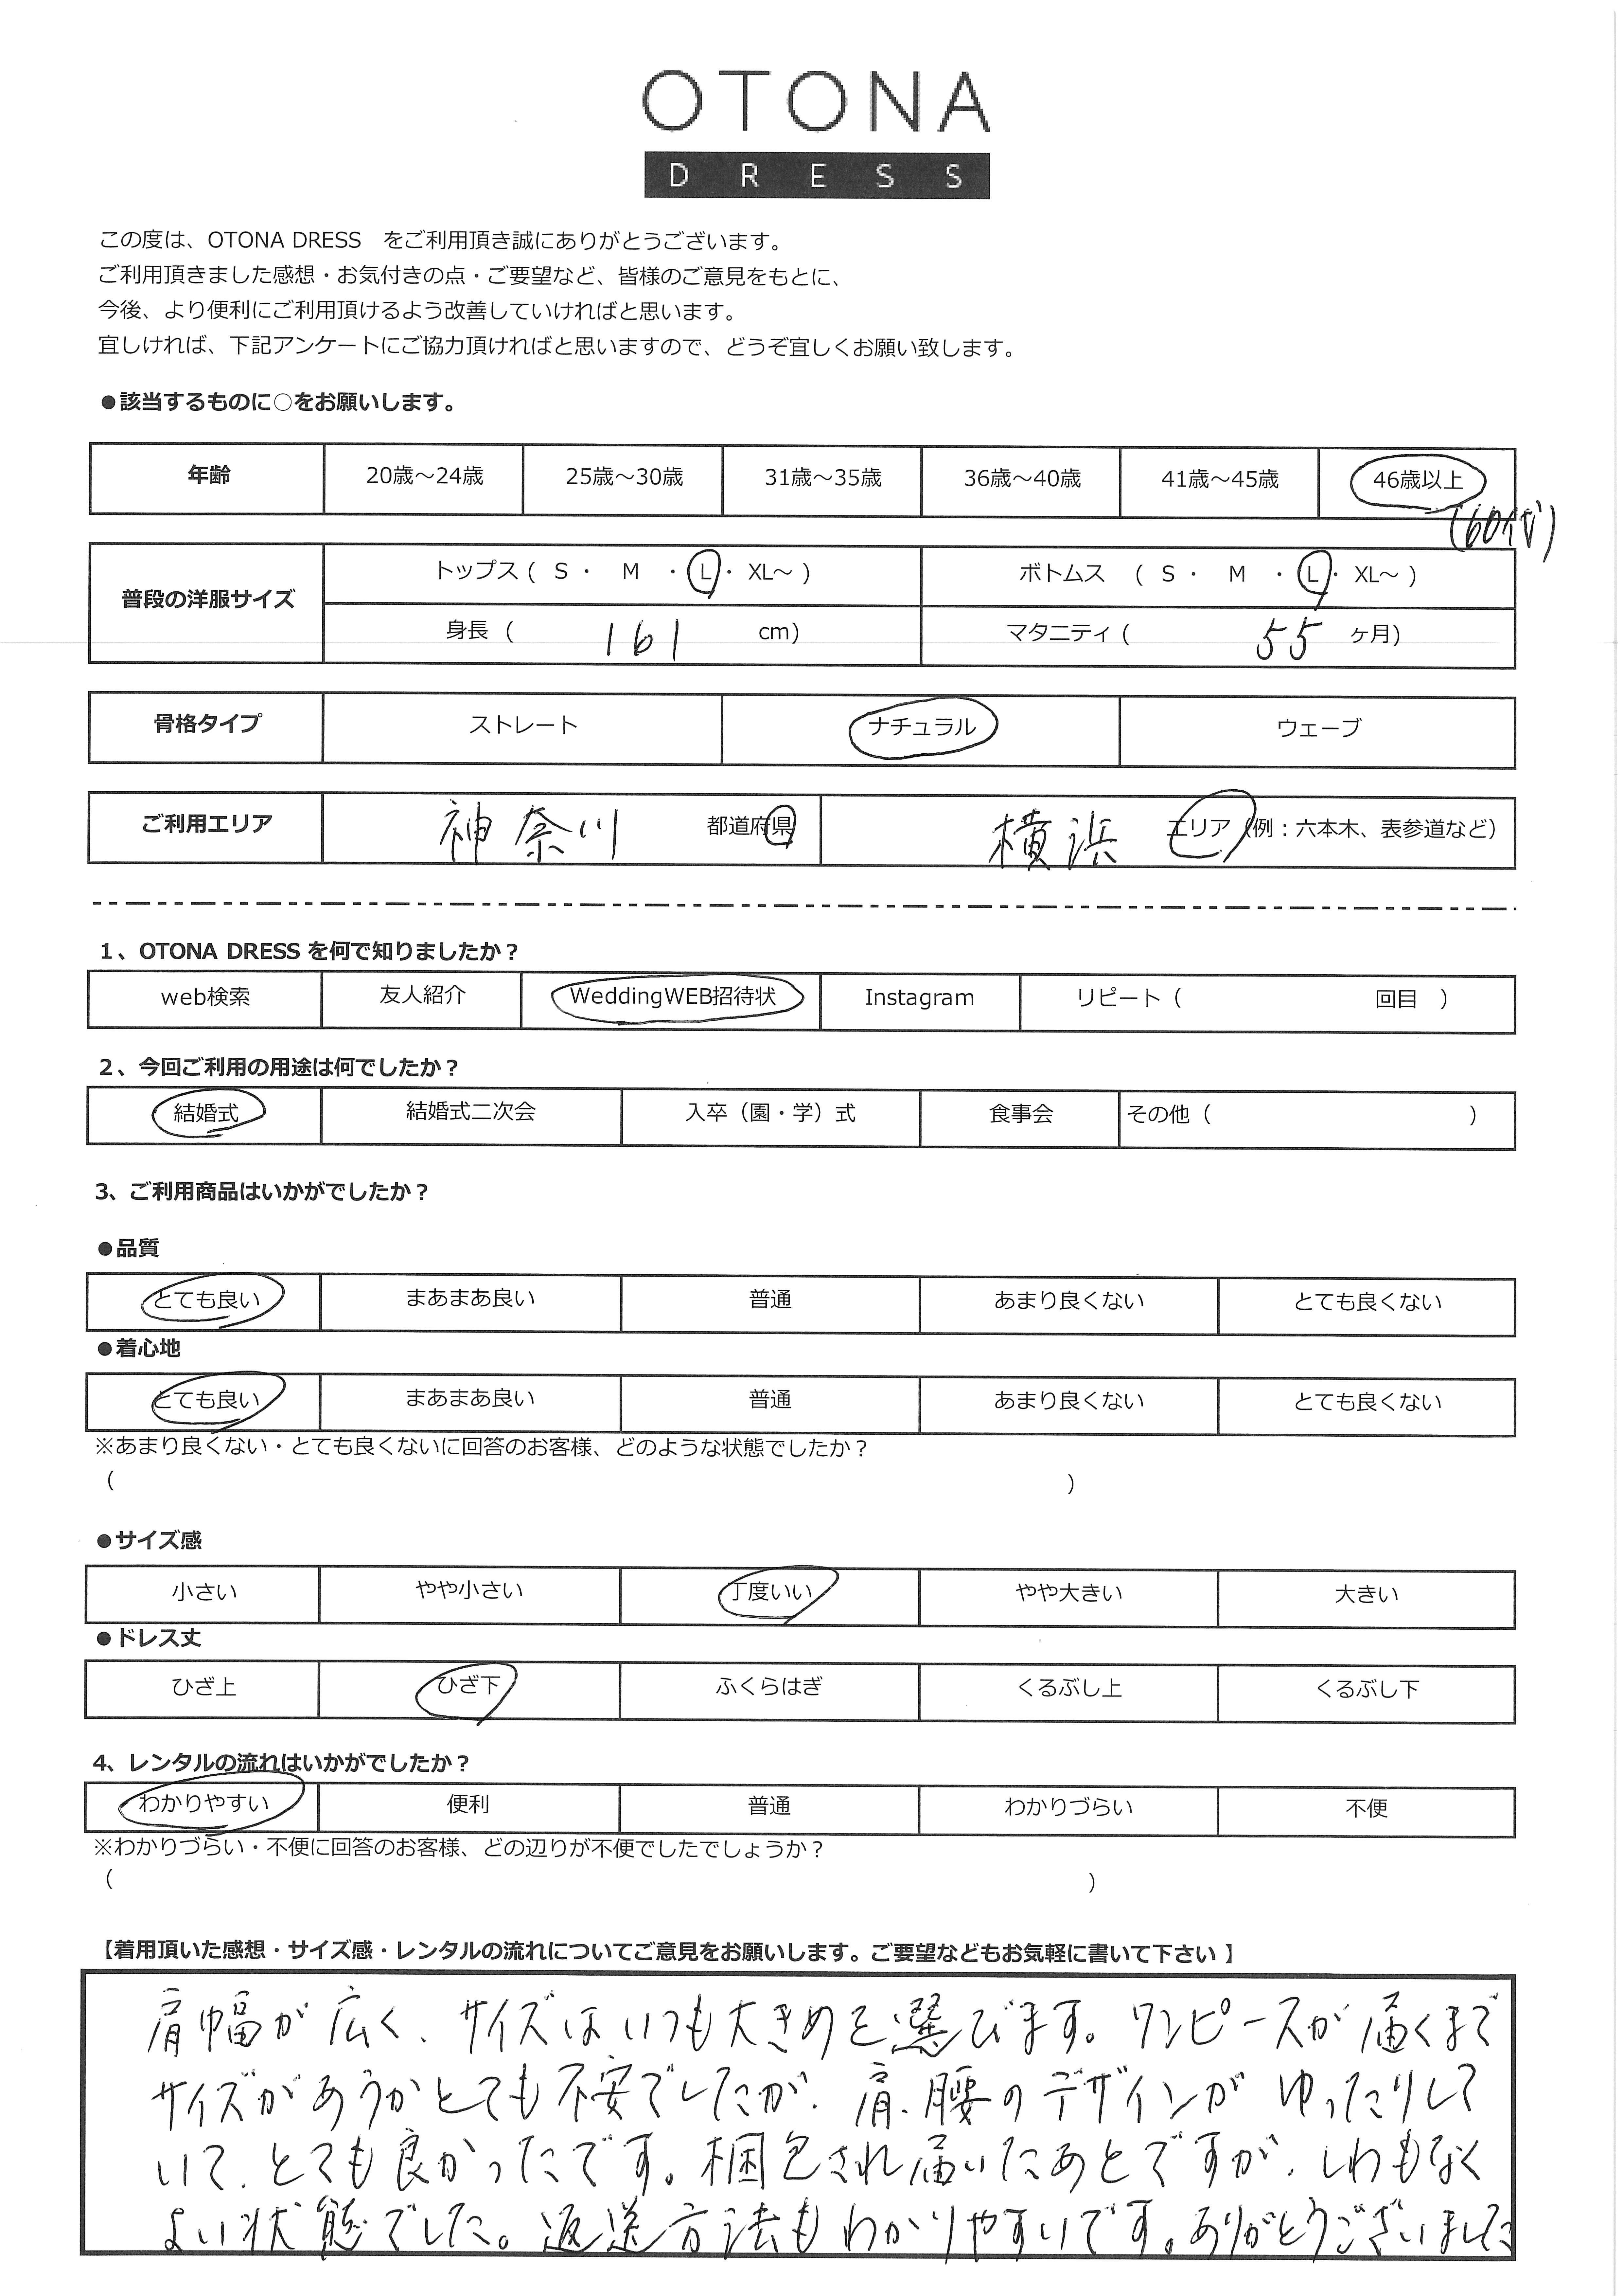 OTONA
DRESS
この度は、OTONA DRESS　をご利用頂き誠にありがとうございます。
ご利用頂きました感想・お気付きの点・ご要望など、皆様のご意見をもとに、
今後、より便利にご利用頂けるよう改善していければと思います。
宜しければ、下記アンケートにご協力頂ければと思いますので、どうぞ宜しくお願い致します。
●該当するものに○をお願いします。
年齢 20歳～24歳 25歳～30歳 31歳～35歳 36歳～40歳 41歳～45歳 46歳以上
(60代)
普段の洋服サイズ トップス ( S ・ M ・ L ・ XL～ ) ボトムス ( S ・ M ・ L ・ XL～ )
身長 ( 161 cm) マタニティ ( 55 ヶ月)
骨格タイプ ストレート ナチュラル ウェーブ
ご利用エリア 神奈川 都道府県 横浜 エリア (例：六本木、表参道など)
1、OTONA DRESS を何で知りましたか？
web検索 友人紹介 WeddingWEB招待状 Instagram リピート ( 回目 )
2、今回ご利用の用途は何でしたか？
結婚式 結婚式二次会 入卒（園・学）式 食事会 その他 ( )
3、ご利用商品はいかがでしたか？
●品質
とても良い まあまあ良い 普通 あまり良くない とても良くない
●着心地
とても良い まあまあ良い 普通 あまり良くない とても良くない
※あまり良くない・とても良くないに回答のお客様、どのような状態でしたか？
( )
●サイズ感
小さい やや小さい 丁度いい やや大きい 大きい
●ドレス丈
ひざ上 ひざ下 ふくらはぎ くるぶし上 くるぶし下
4、レンタルの流れはいかがでしたか？
わかりやすい 便利 普通 わかりづらい 不便
※わかりづらい・不便に回答のお客様、どの辺りが不便でしたでしょうか？
( )
【着用頂いた感想・サイズ感・レンタルの流れについてご意見をお願いします。ご要望などもお気軽に書いて下さい 】
肩幅が広く、サイズはいつも大きめを選びます。ワンピースが届くまで
サイズがあうかとても不安でしたが、肩、腰のデザインがゆったりして
いて、とても良かったです。梱包され届いたあとですが、しわもなく
よい状態でした。返送方法もわかりやすいです。ありがとうございました